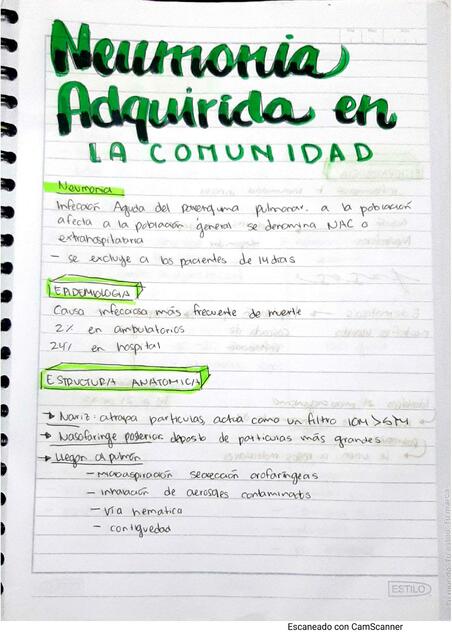 Neumonia
Adquirida en
LA COMUNIDAD
Neumonia
Infección Aguda del parenquima pulmonar. a la población
afecta a la población general se denomina NAC o
extrahospitalaria
- se excluye a los pacientes de 14 dias
EPIDEMIOLOGIA
Causa infecciosa más frecuente de muerte
2% en ambulatorios
24% en hospital
ESTRUCTURA ANATOMICA
→ Nariz: atrapa particulas, actúa como un filtro 10M > 5M
→ Nasofaringe posterior: deposito de particulas más grandes
→ llegan al pulmón
- Microaspiración secreción orofaríngeas
- inhalación de aerosoles contaminados
- via hematica
- contiguedad
ESTILO
Escaneado con CamScanner